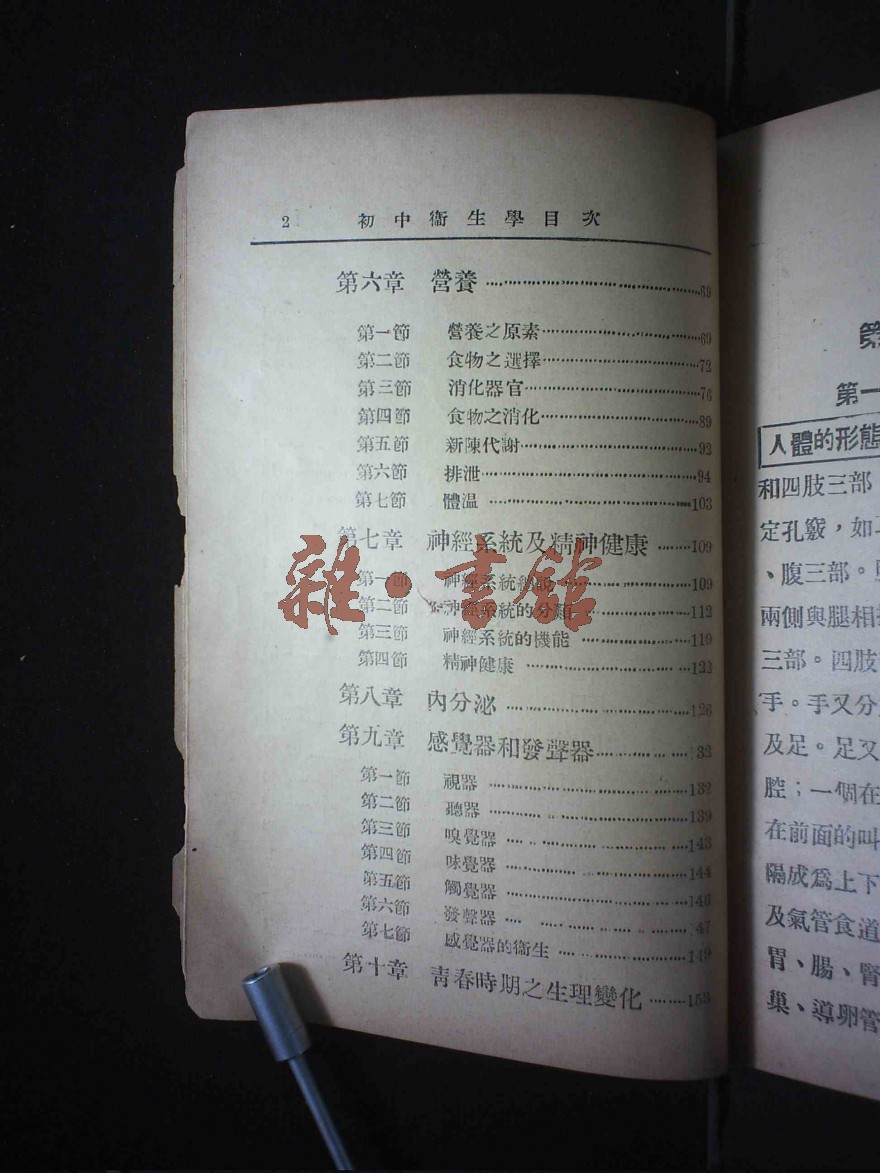 2 初中衞生學目次
第六章 營養………69
第一節 營養之原素………69
第二節 食物之選擇………72
第三節 消化器官………76
第四節 食物之消化………89
第五節 新陳代謝………92
第六節 排泄………94
第七節 體温………103
第七章 神經系統及精神健康………109
第一節 神經系統………109
第二節 神經系統的分類………112
第三節 神經系統的機能………119
第四節 精神健康………122
第八章 內分泌………126
第九章 感覺器和發聲器………32
第一節 視器………132
第二節 聽器………139
第三節 嗅覺器………143
第四節 味覺器………144
第五節 觸覺器………146
第六節 發聲器………47
第七節 感覺器的衞生………149
第十章 靑春時期之生理變化………153
雜·書館
第
第一
人體的形態
和四肢三部
定孔竅，如
、腹三部。
兩側與腿相
三部。四肢
手。手又分
及足。足又
腔；一個在
在前面的叫
隔成爲上下
及氣管食道
胃、腸、腎
巢、導卵管